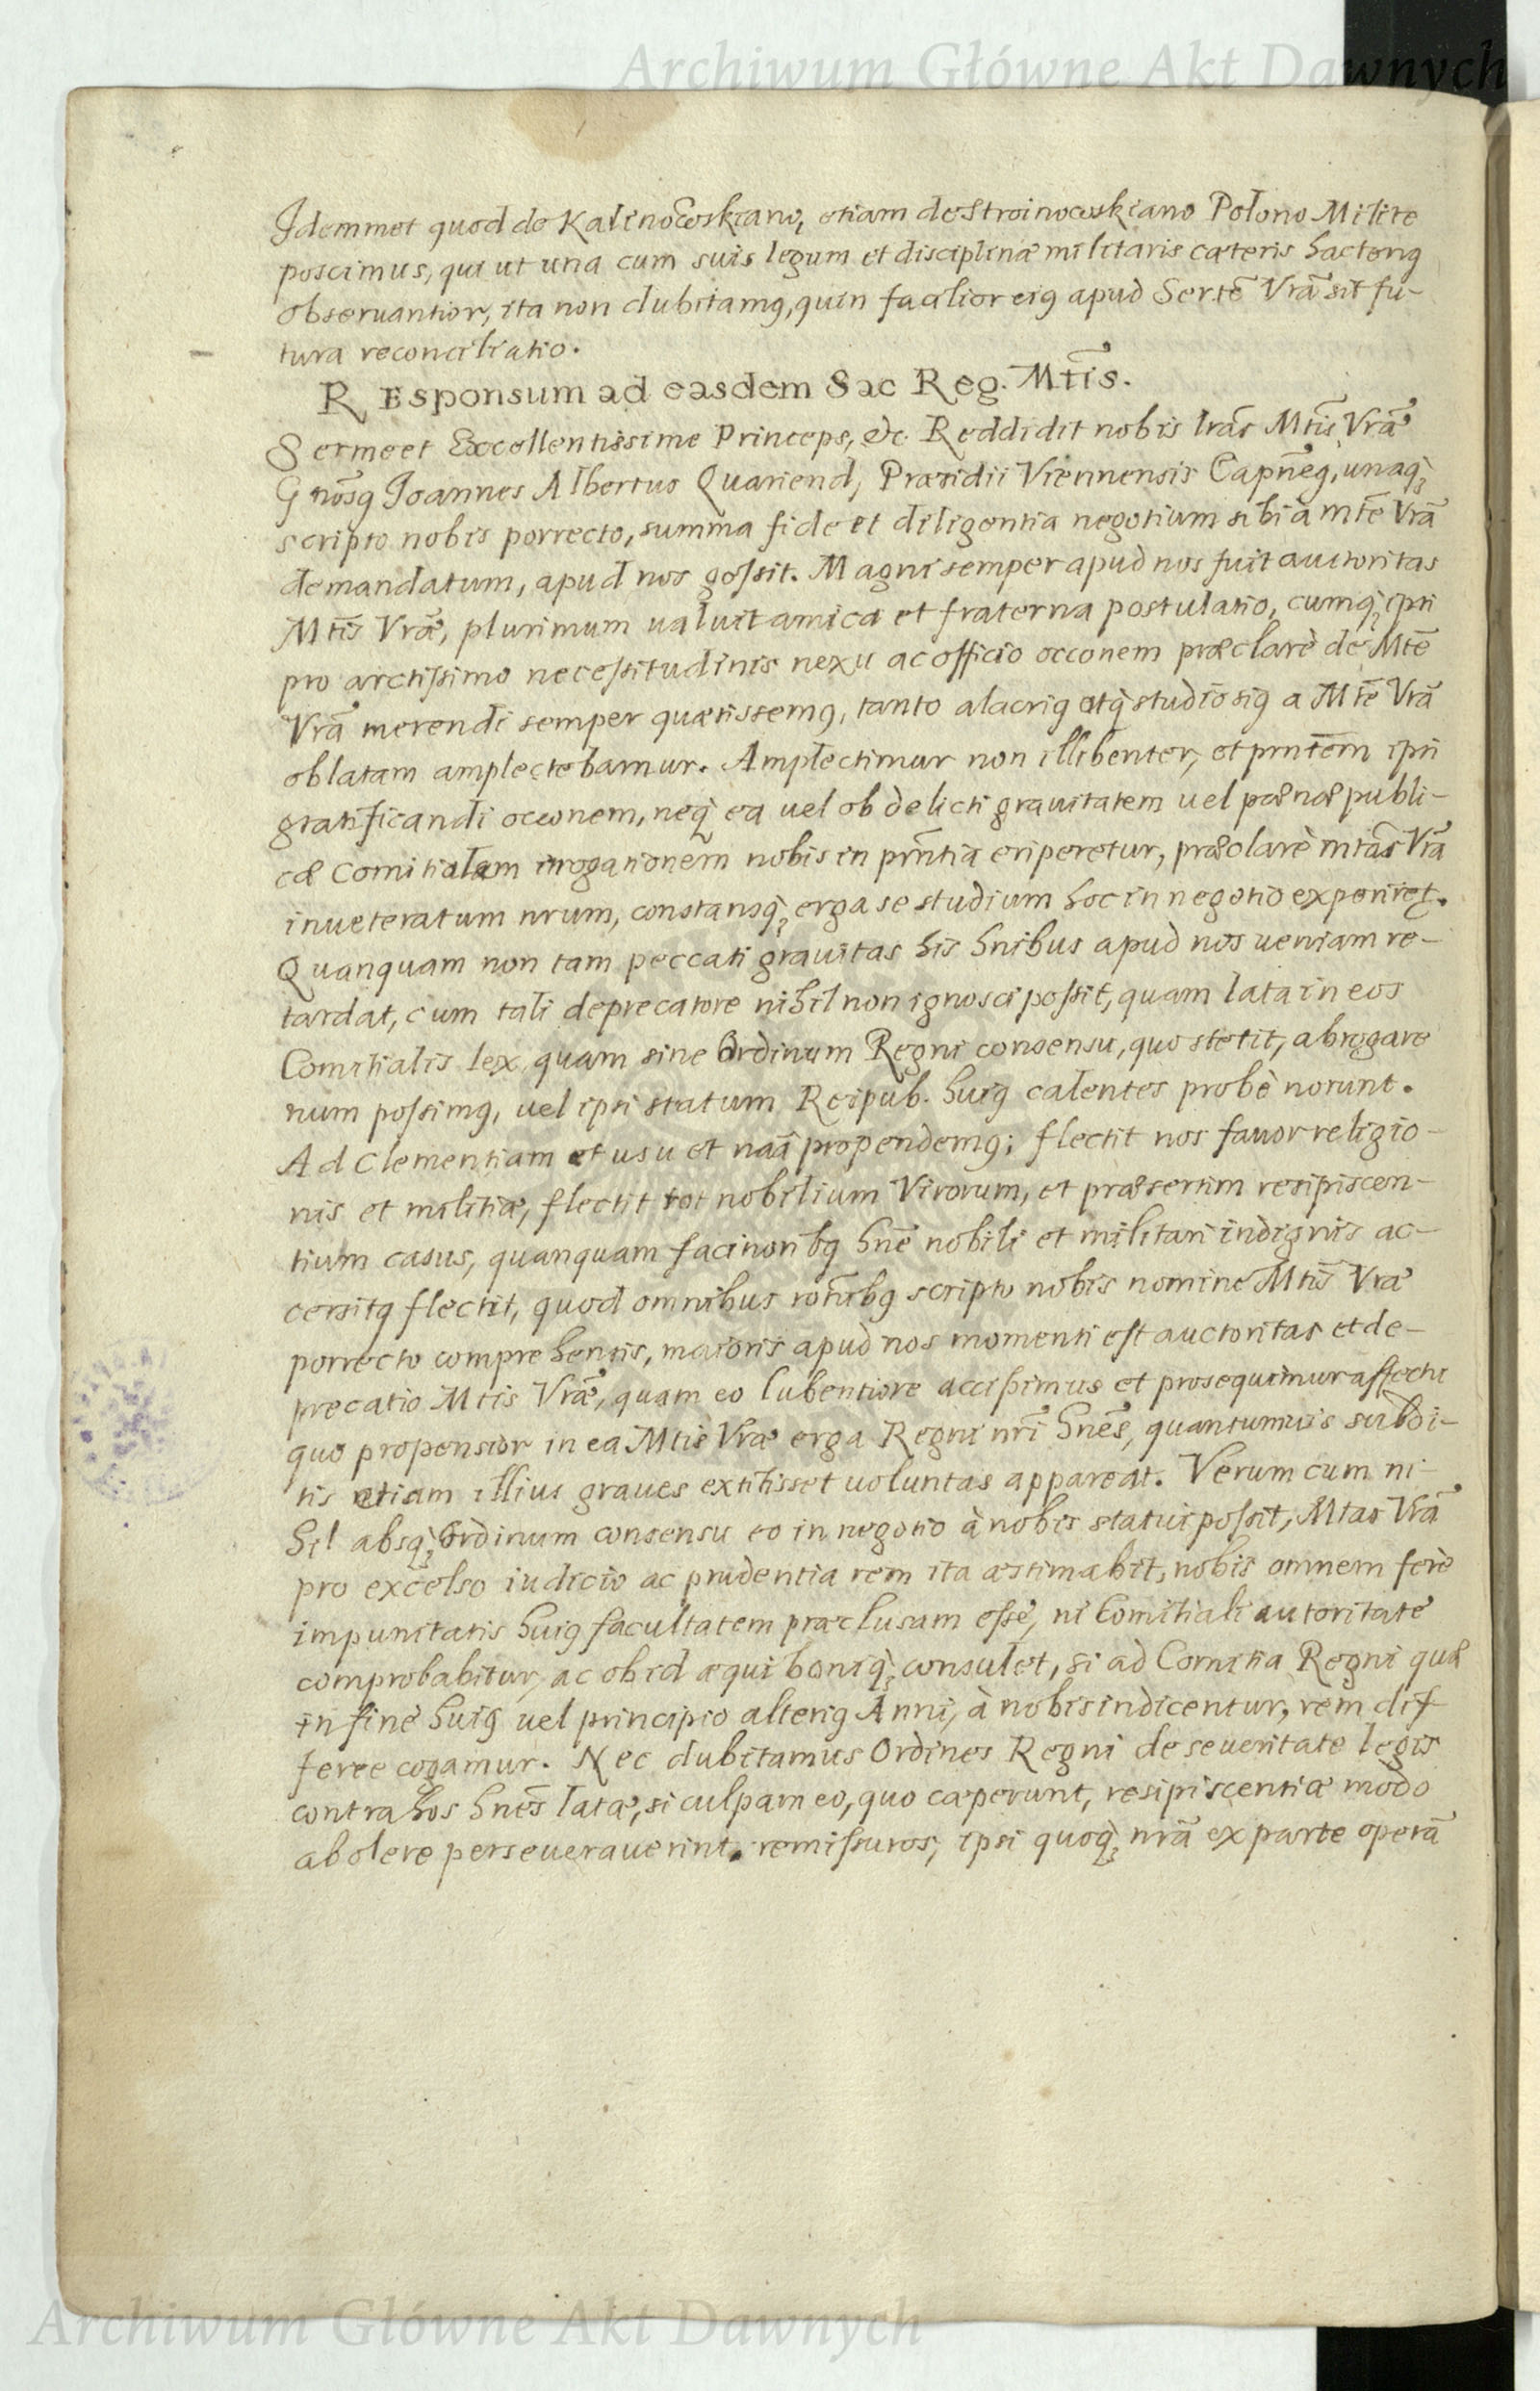 Archiwum Główne Akt Dawnych
Idemmet quod de Kalinowskiano, etiam de Stroinowskiano Polono Milite
poscimus, qui ut una cum suis legum et disciplinæ militaris cæteris hactenꝰ
observantior, ita non dubitamꝰ, quin facilior eiꝰ apud Sertẽ Vrã sit fu-
tura reconciliatio.
REsponsum ad easdem Sac Reg. Mtĩs.
Serme et Excellentissime Princeps, etc. Reddidit nobis lrãs Mtĩs Vræ̃
Gnõsꝰ Joannes Albertus Quariend, Præsidii Viennensis Capñeꝰ, unaq̨
scripto nobis porrecto, summa fide et diligentia negotium sibi à mtẽ Vrã
demandatum, apud nos gessit. Magni semper apud nos fuit auctoritas
Mtĩs Vræ̃, plurimum valuit amica et fraterna postulatio, cumq̨ ipsi
pro arctissimo necessitudinis nexu ac officio occonem præclarè de Mtẽ
Vrã merendi semper quætissemꝰ, tanto alacriꝰ atq̨ studiosiꝰ a Mtẽ Vrã
oblatam amplectebamur. Amplectimur non illibenter, et prñtem ipsi
gratificandi occonem, neq̨ ea vel ob delicti gravitatem vel pœnæ publi-
cæ Comitialem irrogationem nobis in prñtia eriperetur, præclarè mtãs Vrã
inveteratum nrum, constansq̨ erga se studium hoc in negotio experiret.
Quanquam non tam peccati gravitas his hnibus apud nos veniam re-
tardat, cum tali deprecatore nihil non ignosci possit, quam lata in eos
Comitialis lex, quam sine Ordinum Regni consensu, quo stetit, abrogare
num possimꝰ, vel ipsi statum Reipub. huiꝰ calentes probè norunt.
Ad Clementiam et usu et naã propendemꝰ; flectit nos favor religio-
nis et militiæ, flectit tot nobilium Virorum, et præsertim resipiscen-
tium casus, quanquam facinoribꝰ hnẽ nobili et militari indignis ac-
cersitꝰ flectit, quod omnibus rõnibꝰ scripto nobis nomine Mtĩs Vræ
porrecto comprehensis, maioris apud nos momenti est auctoritas et de-
precatio Mtis Vræ̃, quam eo lubentiore accipimus et prosequimur affectu
quo propensior in ea Mtis Vræ erga Regni nrĩ hnẽs, quantumvis subdi-
tis etiam illius graves extitisset voluntas appareat. Verum cum ni-
hil absq̨ Ordinum consensu eo in negotio à nobis statui possit, Mtas Vrã
pro excelso iudicio ac prudentia rem ita æstimabit, nobis omnem ferè
impunitatis huiꝰ facultatem præclusam esse, ni Comitiali autoritate
comprobabitur, ac ob id æqui boniq̨ consulet, si ad Comitia Regni quæ
in fine huiꝰ vel principio alteriꝰ Anni, à nobis indicentur, rem dif
ferre cogamur. Nec dubitamus Ordines Regni de severitate legis
contra hos hnẽs latæ, si culpam eo, quo cæperunt, resipiscentiæ modo
abolere perseveraverint, remissuros, ipsi quoq̨ nrã ex parte operã
Archiwum Główne Akt Dawnych